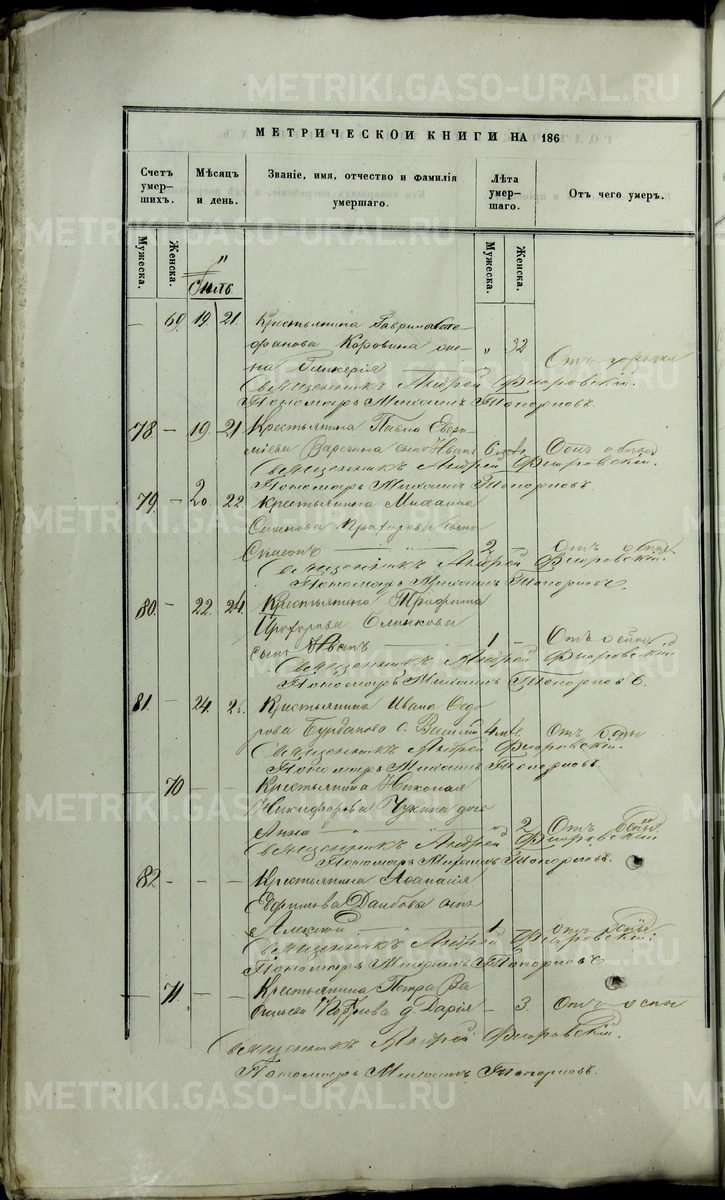 МЕТРИЧЕСКОЙ КНИГИ НА 186
Счетъ умер-шихъ.
Мѣсяцъ и день.
Званіе, имя, отчество и фамилія умершаго.
Лѣта умер-шаго.
Отъ чего умеръ.
Мужеска. Женска. Мужеска. Женска.
— 69. 19. 21. Крестьянина Гавріила Сте
фанова Коровина же
на Гликерія „ 32 Отъ горячки
Священникъ Андрей Флоровскій.
Пономарь Михаилъ Топорковъ.
78 — 19. 21. Крестьянина Павла
сынъ Иванъ 6
Священникъ Андрей Флоровскій.
Пономарь Михаилъ Топорковъ.
79. — 20. 22. Крестьянина Михаила
Прохорова сынъ
2 — Отъ оспы
Священникъ Андрей Флоровскій.
Пономарь Михаилъ Топорковъ.
80. — 22. 24. Крестьянина Трифона
Прохорова
сынъ Иванъ 1 — Отъ оспы
Священникъ Андрей Флоровскій
Пономарь Михаилъ Топорковъ.
81 — 24. 26. Крестьянина Ивана Ѳедо
рова Бурдакова с. Василій 4 Отъ оспы
Священникъ Андрей Флоровскій.
Пономарь Михаилъ Топорковъ.
70 — — Крестьянина Николая
Никифорова дочь
Анна — „ 2 Отъ оспы
Священникъ Андрей Флоровскій
Пономарь Михаилъ Топорковъ.
82 — — — Крестьянина Аѳанасія
сынъ
Алексѣй 1 — отъ оспы
Священникъ Андрей Флоровскій.
Пономарь Михаилъ Топорковъ
— 71. — — Крестьянина Петра Ва
сильева д. Дарія — 3. Отъ оспы
Священникъ Андрей Флоровскій.
Пономарь Михаилъ Топорковъ.
METRIKI.GASO-URAL.RU